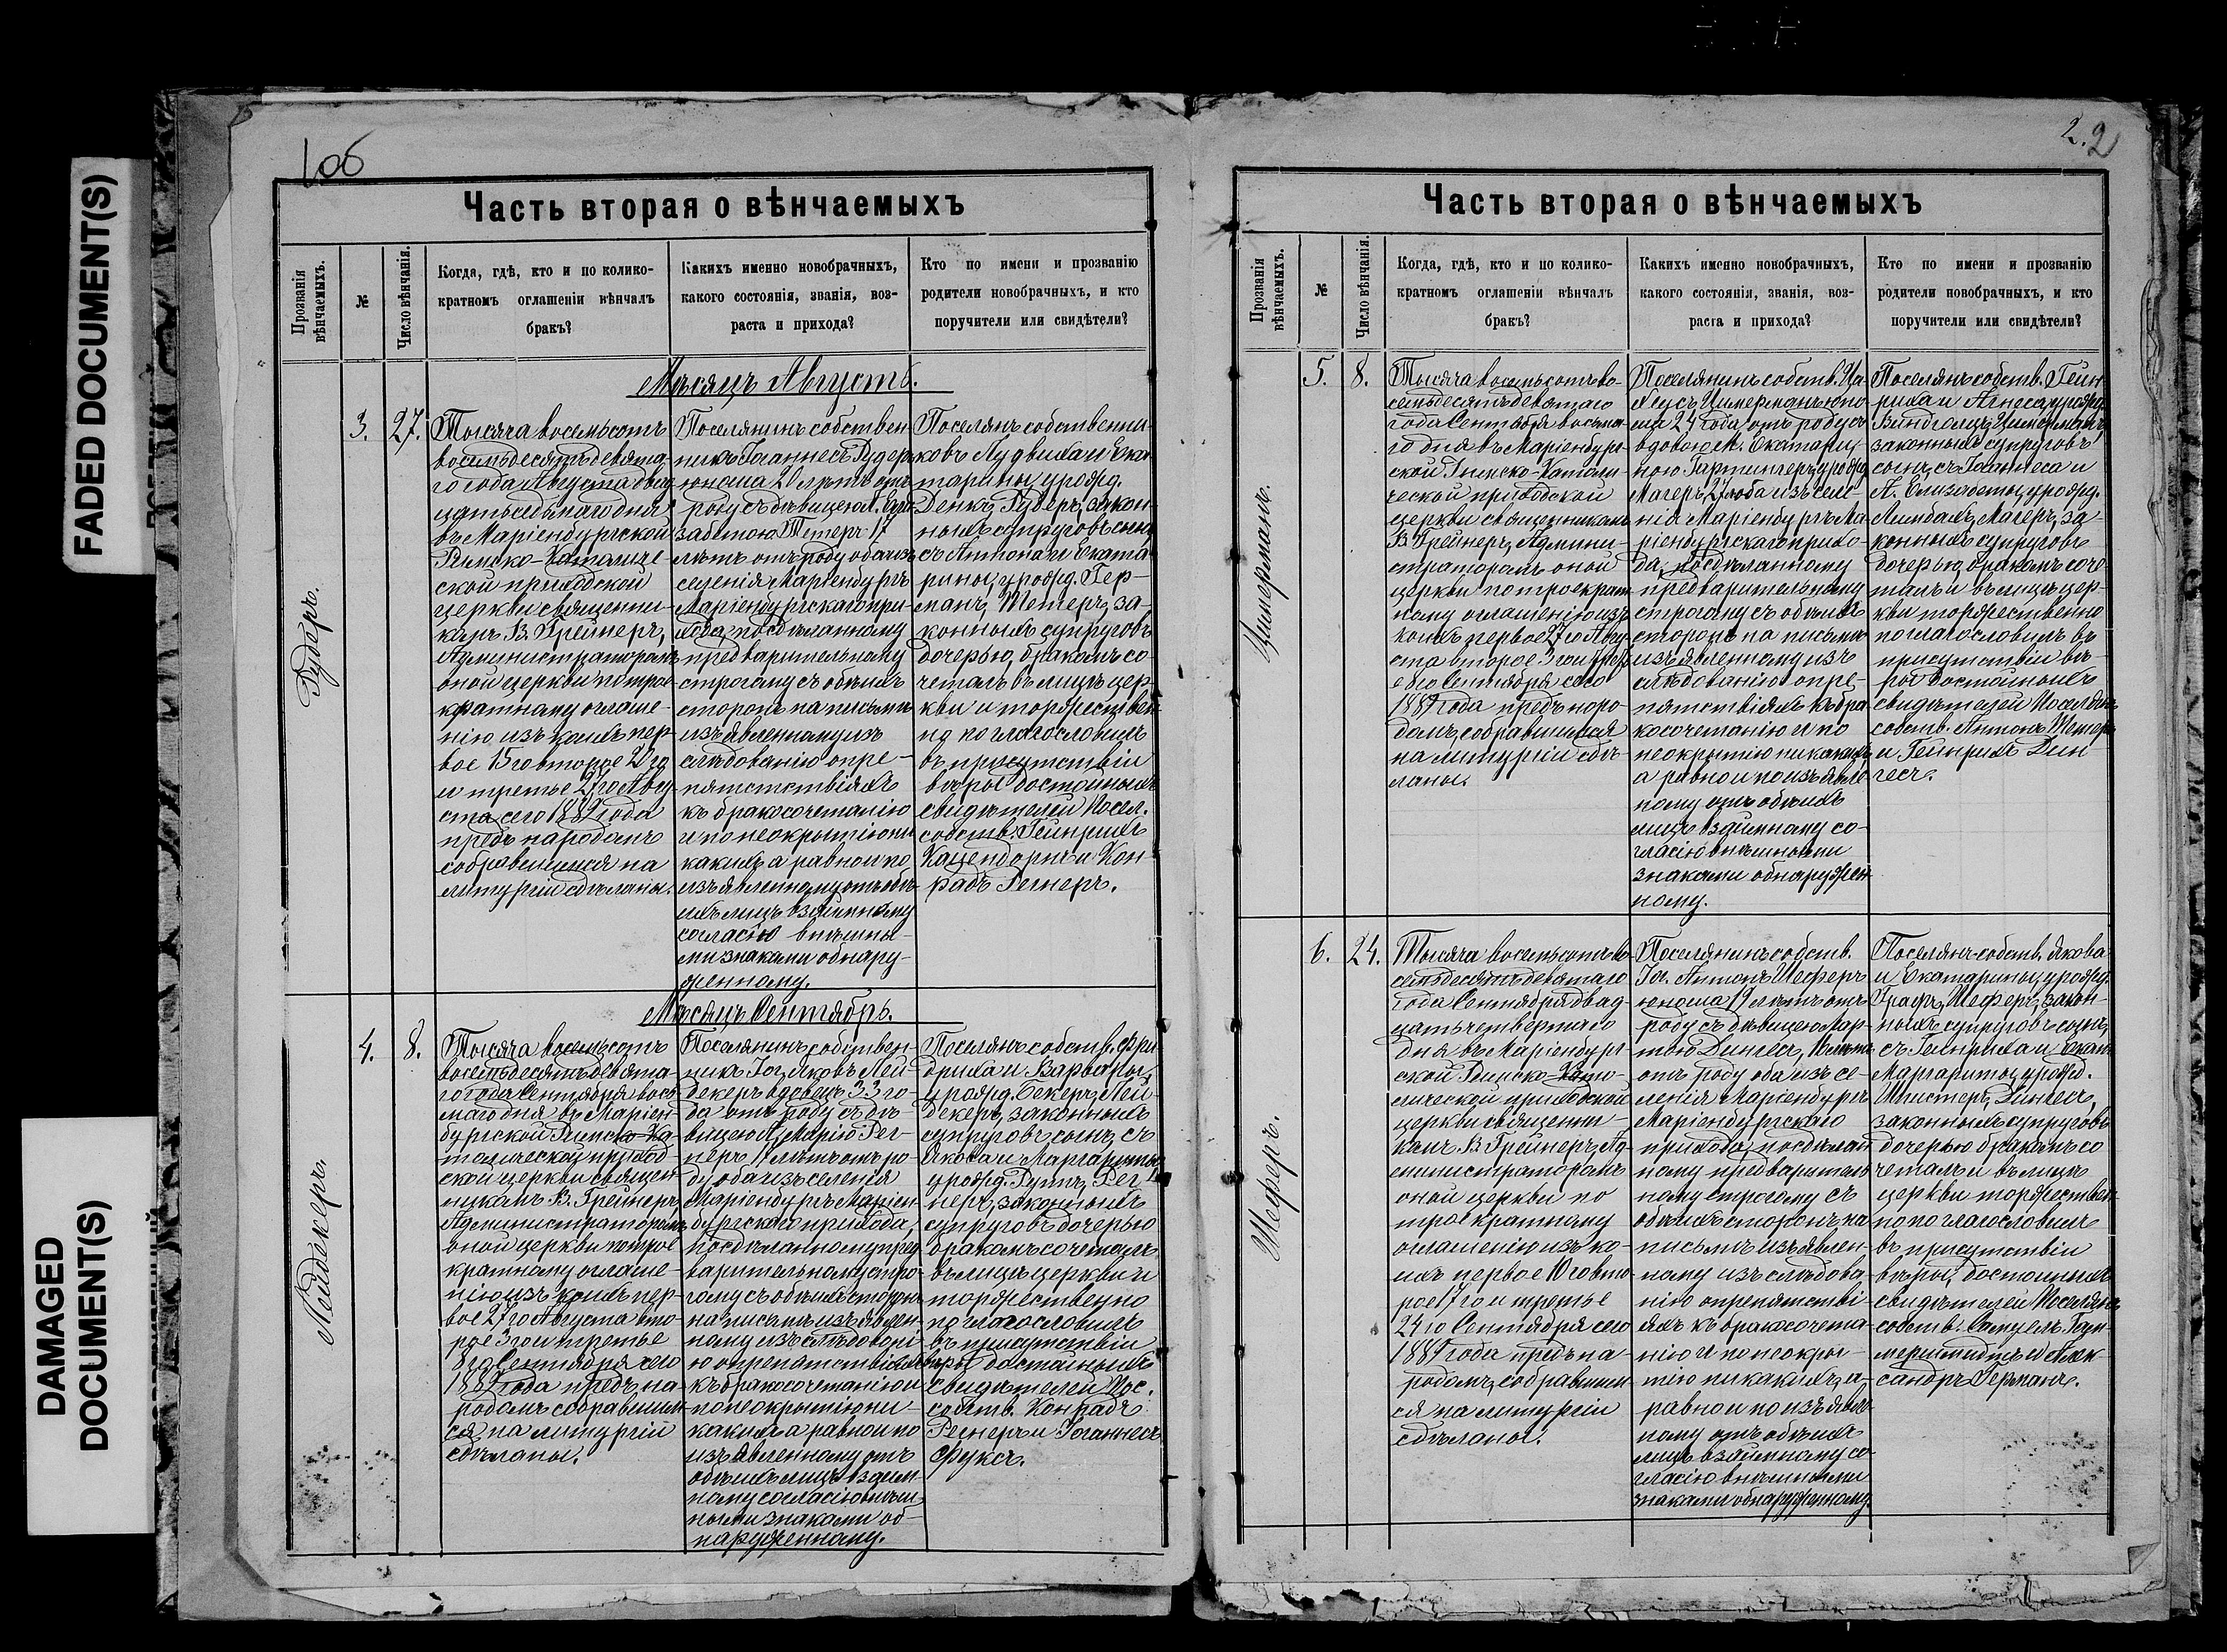 FADED DOCUMENT(S)
DAMAGED
DOCUMENT(S)
106
Часть вторая о вѣнчаемыхъ
Прозванія
вѣнчаемыхъ.
№
Число вѣнчанія.
Когда, гдѣ, кто и по колико-
кратномъ оглашеніи вѣнчалъ
бракъ?
Какихъ именно новобрачныхъ,
какого состоянія, званія, воз-
раста и прихода?
Кто по имени и прозванію
родители новобрачныхъ, и кто
поручители или свидѣтели?
Мѣсяцъ Августъ.
Гудеръ.
3.
27.
Тысяча восемьсотъ
восемьдесятъ девята-
го года Августа двад-
цать седьмаго дня
въ Маріенбургской
Римско-Католиче-
ской приходской
церкви священни-
комъ В. Грейнеръ,
Администраторомъ
оной церкви по трое-
кратному оглаше-
нію изъ коихъ пер-
вое 15го второе 20го
и третье 27го Авгу-
ста сего 1889 года
предъ народомъ
собравшимся на
литургіи сдѣланы.
Поселянинъ собствен-
никъ Іоаннесъ Гудеръ
юноша 20 лѣтъ отъ
роду съ дѣвицею А. Ели-
забетою Тетеръ 17
лѣтъ отъ роду оба изъ
селенія Маріенбургъ
Маріенбургскаго при-
хода, по сдѣланному
предварительному
строгому съ обѣихъ
сторонъ на письмѣ
изъявленному изъ
слѣдованію опре-
пятствіяхъ
къ бракосочетанію
и по неокрытію ни
какихъ а равно и по
изъявленному отъ обѣ-
ихъ лицъ взаимному
согласію внѣшны-
ми знаками обнару-
женному.
Поселянъ собственни-
ковъ Лудвиха и Ека-
тарины, урожд.
Денкъ, Гудеръ, закон-
ныхъ супруговъ сына
съ Антона и Еката-
рины, урожд. Гер-
манъ, Тетеръ, за-
конныхъ супруговъ
дочерью, бракомъ со-
четалъ въ лицѣ цер-
кви и торжествен-
но поглагословилъ
въ присутствіи
вѣры достойныхъ
свидѣтелей Посел.
собств. Гейнрихъ
Кацендорнъ и Кон-
радъ Регнеръ.
Мѣсяцъ Сентябрь.
Лейдекеръ.
4.
8.
Тысяча восемьсотъ
восемьдесятъ девята-
го года Сентября вось-
маго дня въ Маріен-
бургской Римско-Ка-
толической приход-
ской церкви священ-
никомъ В. Грейнеръ,
Администраторомъ
оной церкви по трое
кратному оглаше-
нію изъ коихъ пер-
вое 27го Августа вто-
рое 3го и третье
8го Сентября сего
1889 года предъ на-
родомъ собравшим-
ся на литургіи
сдѣланы.
Поселянинъ собствен-
никъ Іог. Яковъ Лей-
декеръ вдовецъ 33 го-
да отъ роду съ дѣ-
вицею А. Маріею Рег-
неръ 19 лѣтъ отъ ро-
ду оба изъ селенія
Маріенбургъ Маріен-
бургскаго прихода,
по сдѣланному пред-
варительному стро-
гому съ обѣихъ сторонъ
на письмѣ изъявлен-
ному изъ слѣдовані-
ю опрепятствіяхъ
къ бракосочетанію и
по неокрытію ни-
какихъ а равно и по
изъявленному отъ
обѣихъ лицъ взаим-
ному согласію внѣш-
ными знаками об-
наруженному.
Поселянъ собств. Фри-
дриха и Варвары,
урожд. Бекеръ, Лей-
декеръ, законныхъ
супруговъ сынъ, съ
Якова и Маргариты
урожд. Руппъ, Рег-
неръ, законныхъ
супруговъ дочерью
бракомъ сочеталъ
въ лицѣ церкви и
торжественно
поглагословилъ
въ присутствіи
вѣры достойныхъ
свидѣтелей Пос.
собств. Конрадъ
Регнеръ и Іоаннесъ
Фуксъ.
2.2
Часть вторая о вѣнчаемыхъ
Прозванія
вѣнчаемыхъ.
№
Число вѣнчанія.
Когда, гдѣ, кто и по колико-
кратномъ оглашеніи вѣнчалъ
бракъ?
Какихъ именно новобрачныхъ,
какого состоянія, званія, воз-
раста и прихода?
Кто по имени и прозванію
родители новобрачныхъ, и кто
поручители или свидѣтели?
Цимерманъ.
5.
8.
Тысяча восемьсотъ во-
семьдесятъ девятаго
года Сентября восьма-
го дня въ Маріенбург-
ской Римско-Католи-
ческой приходской
церкви священникомъ
В. Грейнеръ, Админи-
страторомъ оной
церкви по троекрат-
ному оглашенію изъ
коихъ первое 27го Авгу-
ста второе 3го и треть-
е 8го Сентября сего
1889 года предъ наро-
домъ собравшимся
на литургіи сдѣ-
ланы.
Поселянинъ собств. Ца-
хеусъ Цимерманъ юно-
ша 24 года отъ роду съ
вдовою М. Екатари-
ною Гартингеръ, урожд.
Магеръ 27 оба изъ селе-
нія Маріенбургъ Ма-
ріенбургскаго прихо-
да, по сдѣланному
предварительному
строгому съ обѣихъ
сторонъ на письмѣ
изъявленному изъ
слѣдованію опре-
пятствіяхъ къ бра-
косочетанію и по
неокрытію никакихъ
а равно и по изъявле-
ному отъ обѣихъ
лицъ взаимному со-
гласію внѣшными
знаками обнаружен-
ному.
Поселянъ собств. Гейн-
риха и Агнеса, урожд.
Виндгольцъ, Цимерманъ,
законныхъ супруговъ
сына, съ Іоаннеса и
А. Елизабеты, урожд.
Лимбахъ, Магеръ, за-
конныхъ супруговъ
дочерью, бракомъ соче-
талъ и въ лицѣ цер-
кви торжественно
поглагословилъ въ
присутствіи вѣ-
ры достойныхъ
свидѣтелей Поселянъ
собств. Антонъ Тетеръ
и Гейнрихъ Дин
гесъ.
Шеферъ.
6.
24.
Тысяча восемьсотъ во-
семьдесятъ девятаго
года Сентября двад-
цать четвертаго
дня въ Маріенбург-
ской Римско-Като-
лической приходской
церкви священни-
комъ В. Грейнеръ, Ад-
министраторомъ
оной церкви по
трое кратному
оглашенію изъ ко-
ихъ первое 10го вто-
рое 17го и третье
24го Сентября сего
1889 года предъ на-
родомъ, собравшим-
ся на литургіи
сдѣланы.
Поселянинъ собств.
Іог. Антонъ Шеферъ
юноша 19 лѣтъ отъ
роду съ дѣвицею Мар-
тою Дингесъ, 18 лѣтъ
отъ роду оба изъ се-
ленія Маріенбургъ
Маріенбургскаго
прихода, по сдѣлан-
ному предваритель-
ному строгому съ
обѣихъ сторонъ на
письмѣ изъявлен-
ному изъ слѣдова-
нію опрепятстві-
яхъ къ бракосочета-
нію и по неокры-
тію никакихъ, а
равно и по изъявле-
ному отъ обѣихъ
лицъ взаимному со-
гласію внѣшными
знаками обнаруженному.
Поселянъ собств. Якова
и Екатарины, урожд.
Графъ, Шеферъ, закон-
ныхъ супруговъ сына,
съ Гейнриха и Екат.
Маргариты, урожд.
Шнитеръ, Дингесъ,
законныхъ супруговъ
дочерью бракомъ со
четалъ и въ лицѣ
церкви торжествен-
но поглагословилъ
въ присутствіи
вѣры достойныхъ
свидѣтелей Поселянъ
собств. Самуелъ Гам-
мершмидтъ и Алек-
сандръ Германъ.